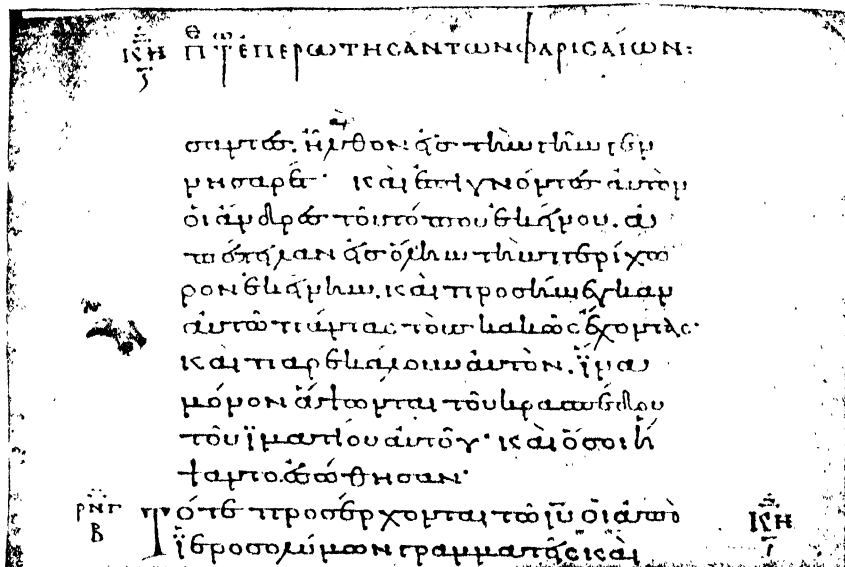 ἐπερωτησάντων φαρισαίων:
σαντες. ἦλθον εἰς τὴν γῆν γεν
νησαρέτ· καὶ ἐπιγνόντες αὐτὸν
οἱ ἄνδρες τοῦ τόπου ἐκείνου. ἀ
πέστειλαν εἰς ὅλην τὴν περίχω
ρον ἐκείνην. καὶ προσήνεγκαν
αὐτῷ πάντας τοὺς κακῶς ἔχοντας·
καὶ παρεκάλουν αὐτὸν. ἵνα
μόνον ἅψωνται τοῦ κρασπέδου
τοῦ ϊματίου αὐτοῦ· καὶ ὅσοι ἥ
ψαντο. ἐσώθησαν·
ρνγ Β Τότε προσέρχονται τῷ ιυ̅ οἱ ἀπὸ ΚΗ
ϊεροσολύμων γραμματεῖς καὶ